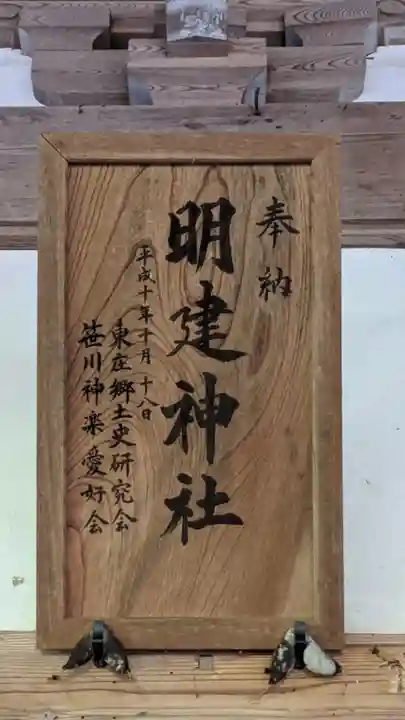 奉納
明建神社
平成十年十月十八日
東庄郷土史研究会
笹川神楽愛好会